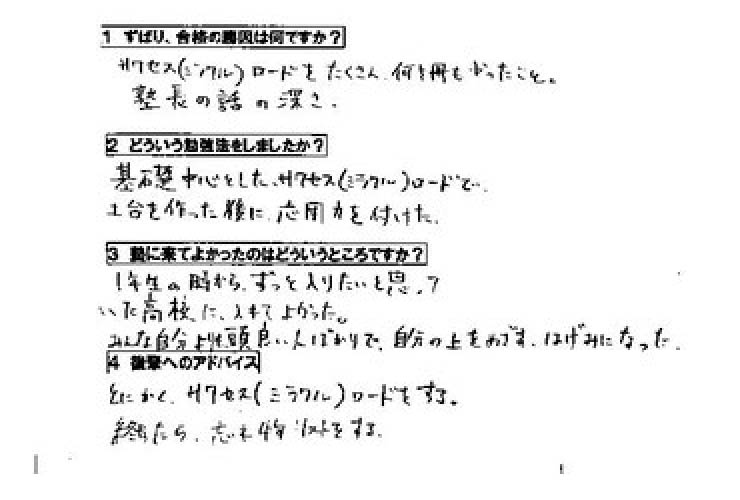 1 ずばり、合格の要因は何ですか?
サクセス(ミラクル)ロードをたくさん、何冊もやったこと。
塾長の話の深さ。
2 どういう勉強法をしましたか?
基礎中心とした、サクセス(ミラクル)ロードで、
土台を作った後に、応用力を付けた。
3 塾に来てよかったのはどういうところですか?
1年生の時から、ずっと入りたいと思って
いた高校に、入れてよかった。
みんな自分より頭良い人ばかりで、自分の上をめざす、はげみになった。
4 後輩へのアドバイス
とにかく、サクセス(ミラクル)ロードをする。
終ったら、をする。